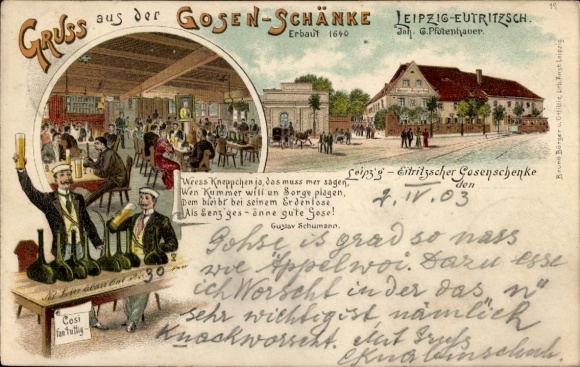 Gruss aus der Gosen-Schänke
Erbaut 1640
Leipzig-Eutritzsch.
Inh. G. Pfotenhauer.
19
Bruno Bürger u. Ottillie, Lith. Anst. Leipzig
Weess Kneppchen ja, das muss mer sagen,
Wen Kummer will un Sorge plagen,
Dem bleibt bei seinem Erdenlose
Als Eenz'ges - änne gute Gose!
Gustav Schumann.
Leipz'g - Eitritzscher Gosenschenke
den
2. IV. 03
Gohse is grad so nass
wie Äppelwoi. Dazu esse
ich Worscht in der das "n"
sehr wichtig ist nämlich
Knackworscht. Mit Gruß
30
Cosi
fan tutti